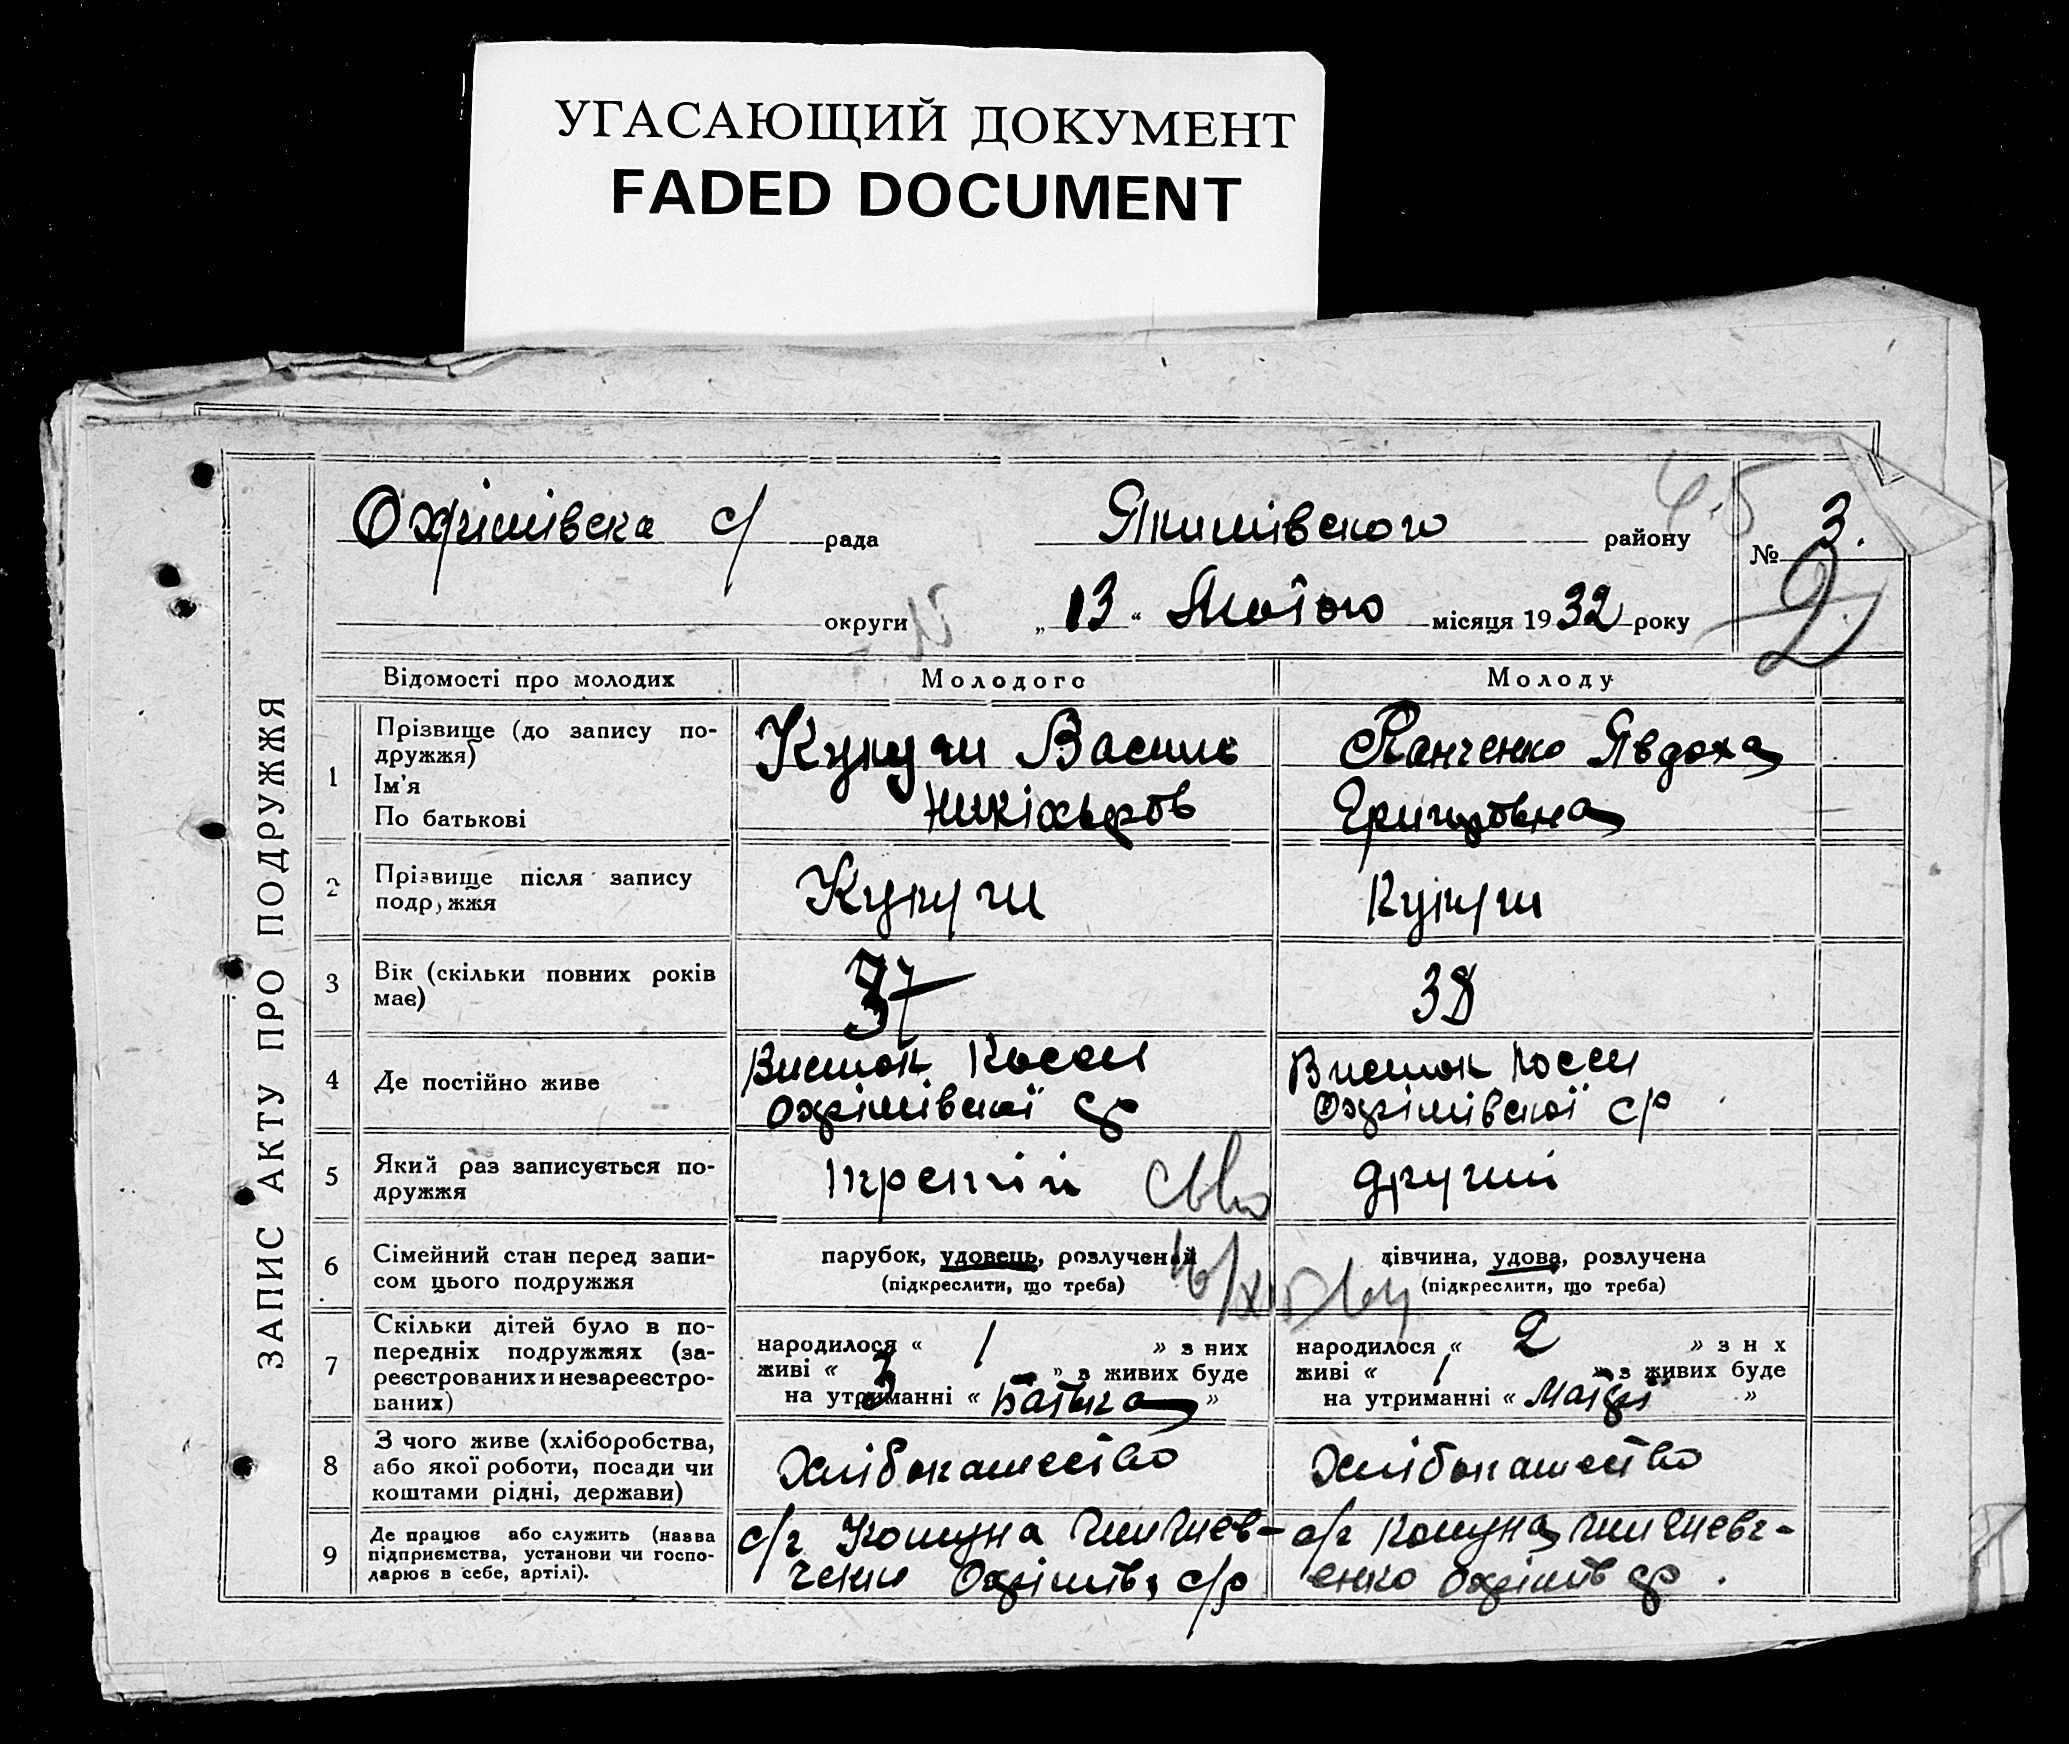 УГАСАЮЩИЙ ДОКУМЕНТ
FADED DOCUMENT
ЗАПИС АКТУ ПРО ПОДРУЖЖЯ
Охрімівска с/ рада Якимівского району № 3.
2
округи „13“ Лютого місяця 1932 року
Відомості про молодих Молодого Молоду
1 Прізвище (до запису подружжя)
Ім'я
По батькові
Василь
Панченко Явдоха
Григоровна
2 Прізвище після запису
подружжя
3 Вік (скільки повних років
має)
37 38
4 Де постійно живе
Охрімівскої с/р Охрімівскої с/р
5 Який раз записується по-
дружжя
третій другий
6 Сімейний стан перед запи-
сом цього подружжя
парубок, удовець, розлучений
(підкреслити, що треба)
дівчина, удова, розлучена
(підкреслити, що треба)
7 Скільки дітей було в по-
передніх подружжях (за-
реєстрованих и незареєстро-
ваних)
народилося « » з них
живі « » з живих буде
на утриманні « Батька »
народилося « 2 » з н х
живі « 1 » з живих буде
на утриманні « Матері »
8 З чого живе (хліборобства,
або якої роботи, посади чи
коштами рідні, держави)
9 Де працює або служить (назва
підприємства, установи чи госпо-
дарює в себе, артілі).
с/г Комуна
Охрімів с/р
с/г Комуна
Охрімів с/р.